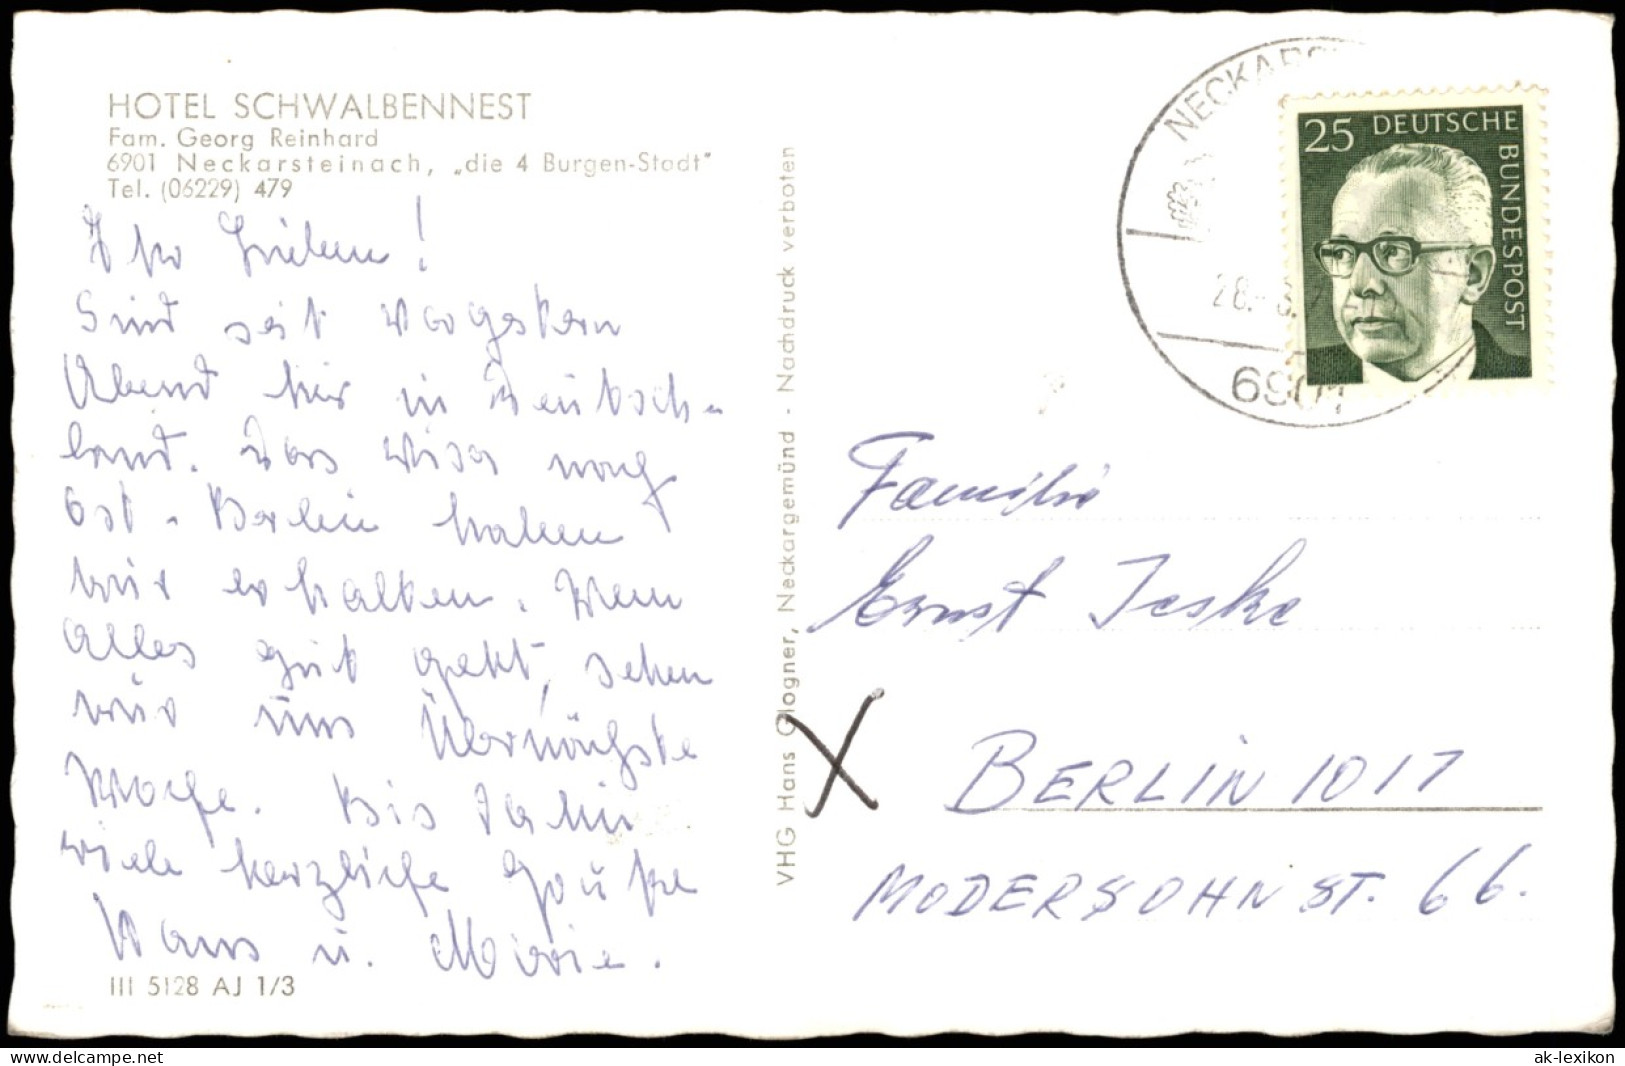 HOTEL SCHWALBENNEST
Fam. Georg Reinhard
6901 Neckarsteinach, „die 4 Burgen-Stadt"
Tel. (06229) 479
Ihr Lieben!
Sind seit vorgestern
Abend hier in Deutsch-
land. Das Visa nach
Ost-Berlin haben
wir erhalten. Wenn
Alles gut geht, sehen
wir uns Übernächste
Woche. Bis dahin
viele herzliche Grüße
Hans u.
III 5128 AJ 1/3
VHG Hans Glogner, Neckargemünd - Nachdruck verboten
NECKARS
28.
6901
25 DEUTSCHE
BUNDESPOST
Familie
Ernst Jeske
X
BERLIN 1017
MODERSOHNST. 66.
www.delcampe.net
ak-lexikon